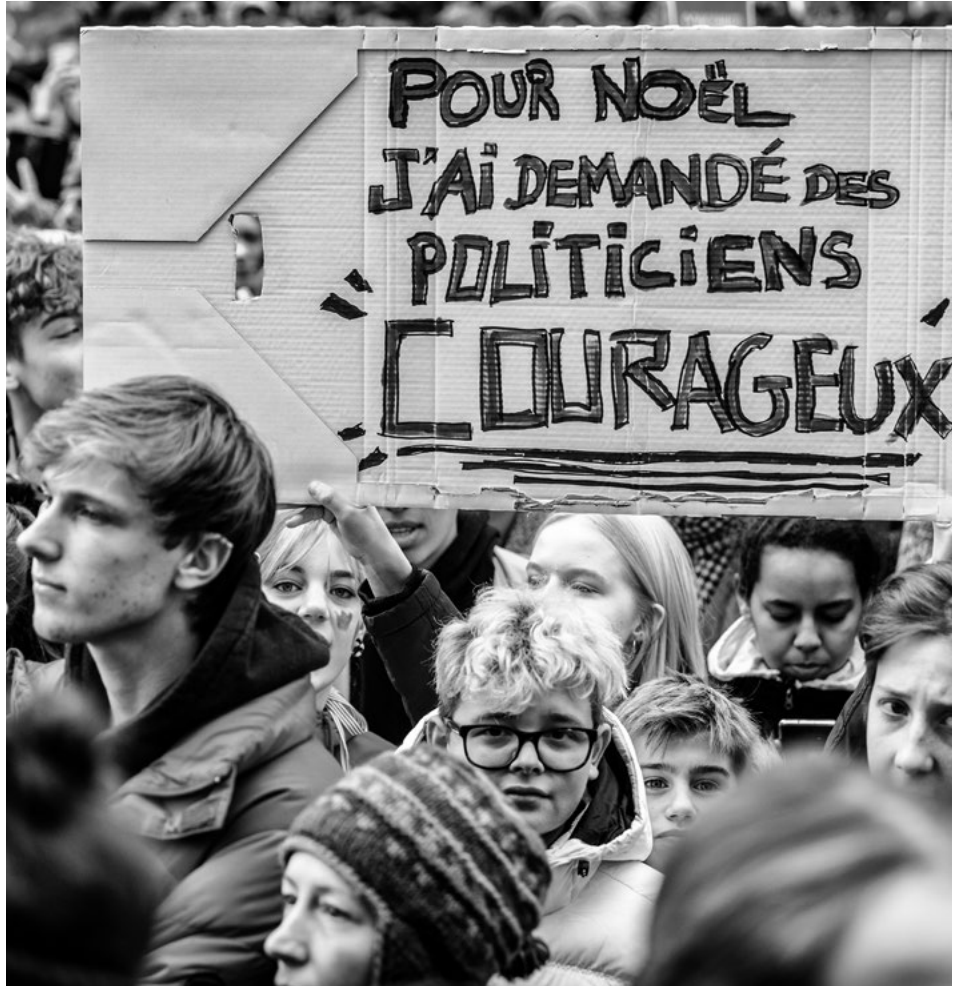 POUR NOËL
J'Aï DEMANDÉ DES
POLiTiCiENS
COURAGEUX